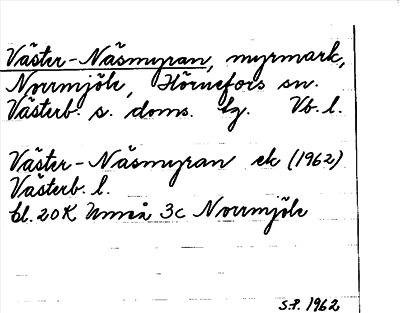 Väster-Näsmyran, myrmark,
Norrmjöle, Hörnefors sn.
Västerb. s. doms. tg. Vb. l.
Väster-Näsmyran ek (1962)
Västerb. l.
bl. 20K Umeå 3c Norrmjöle
S.P. 1962